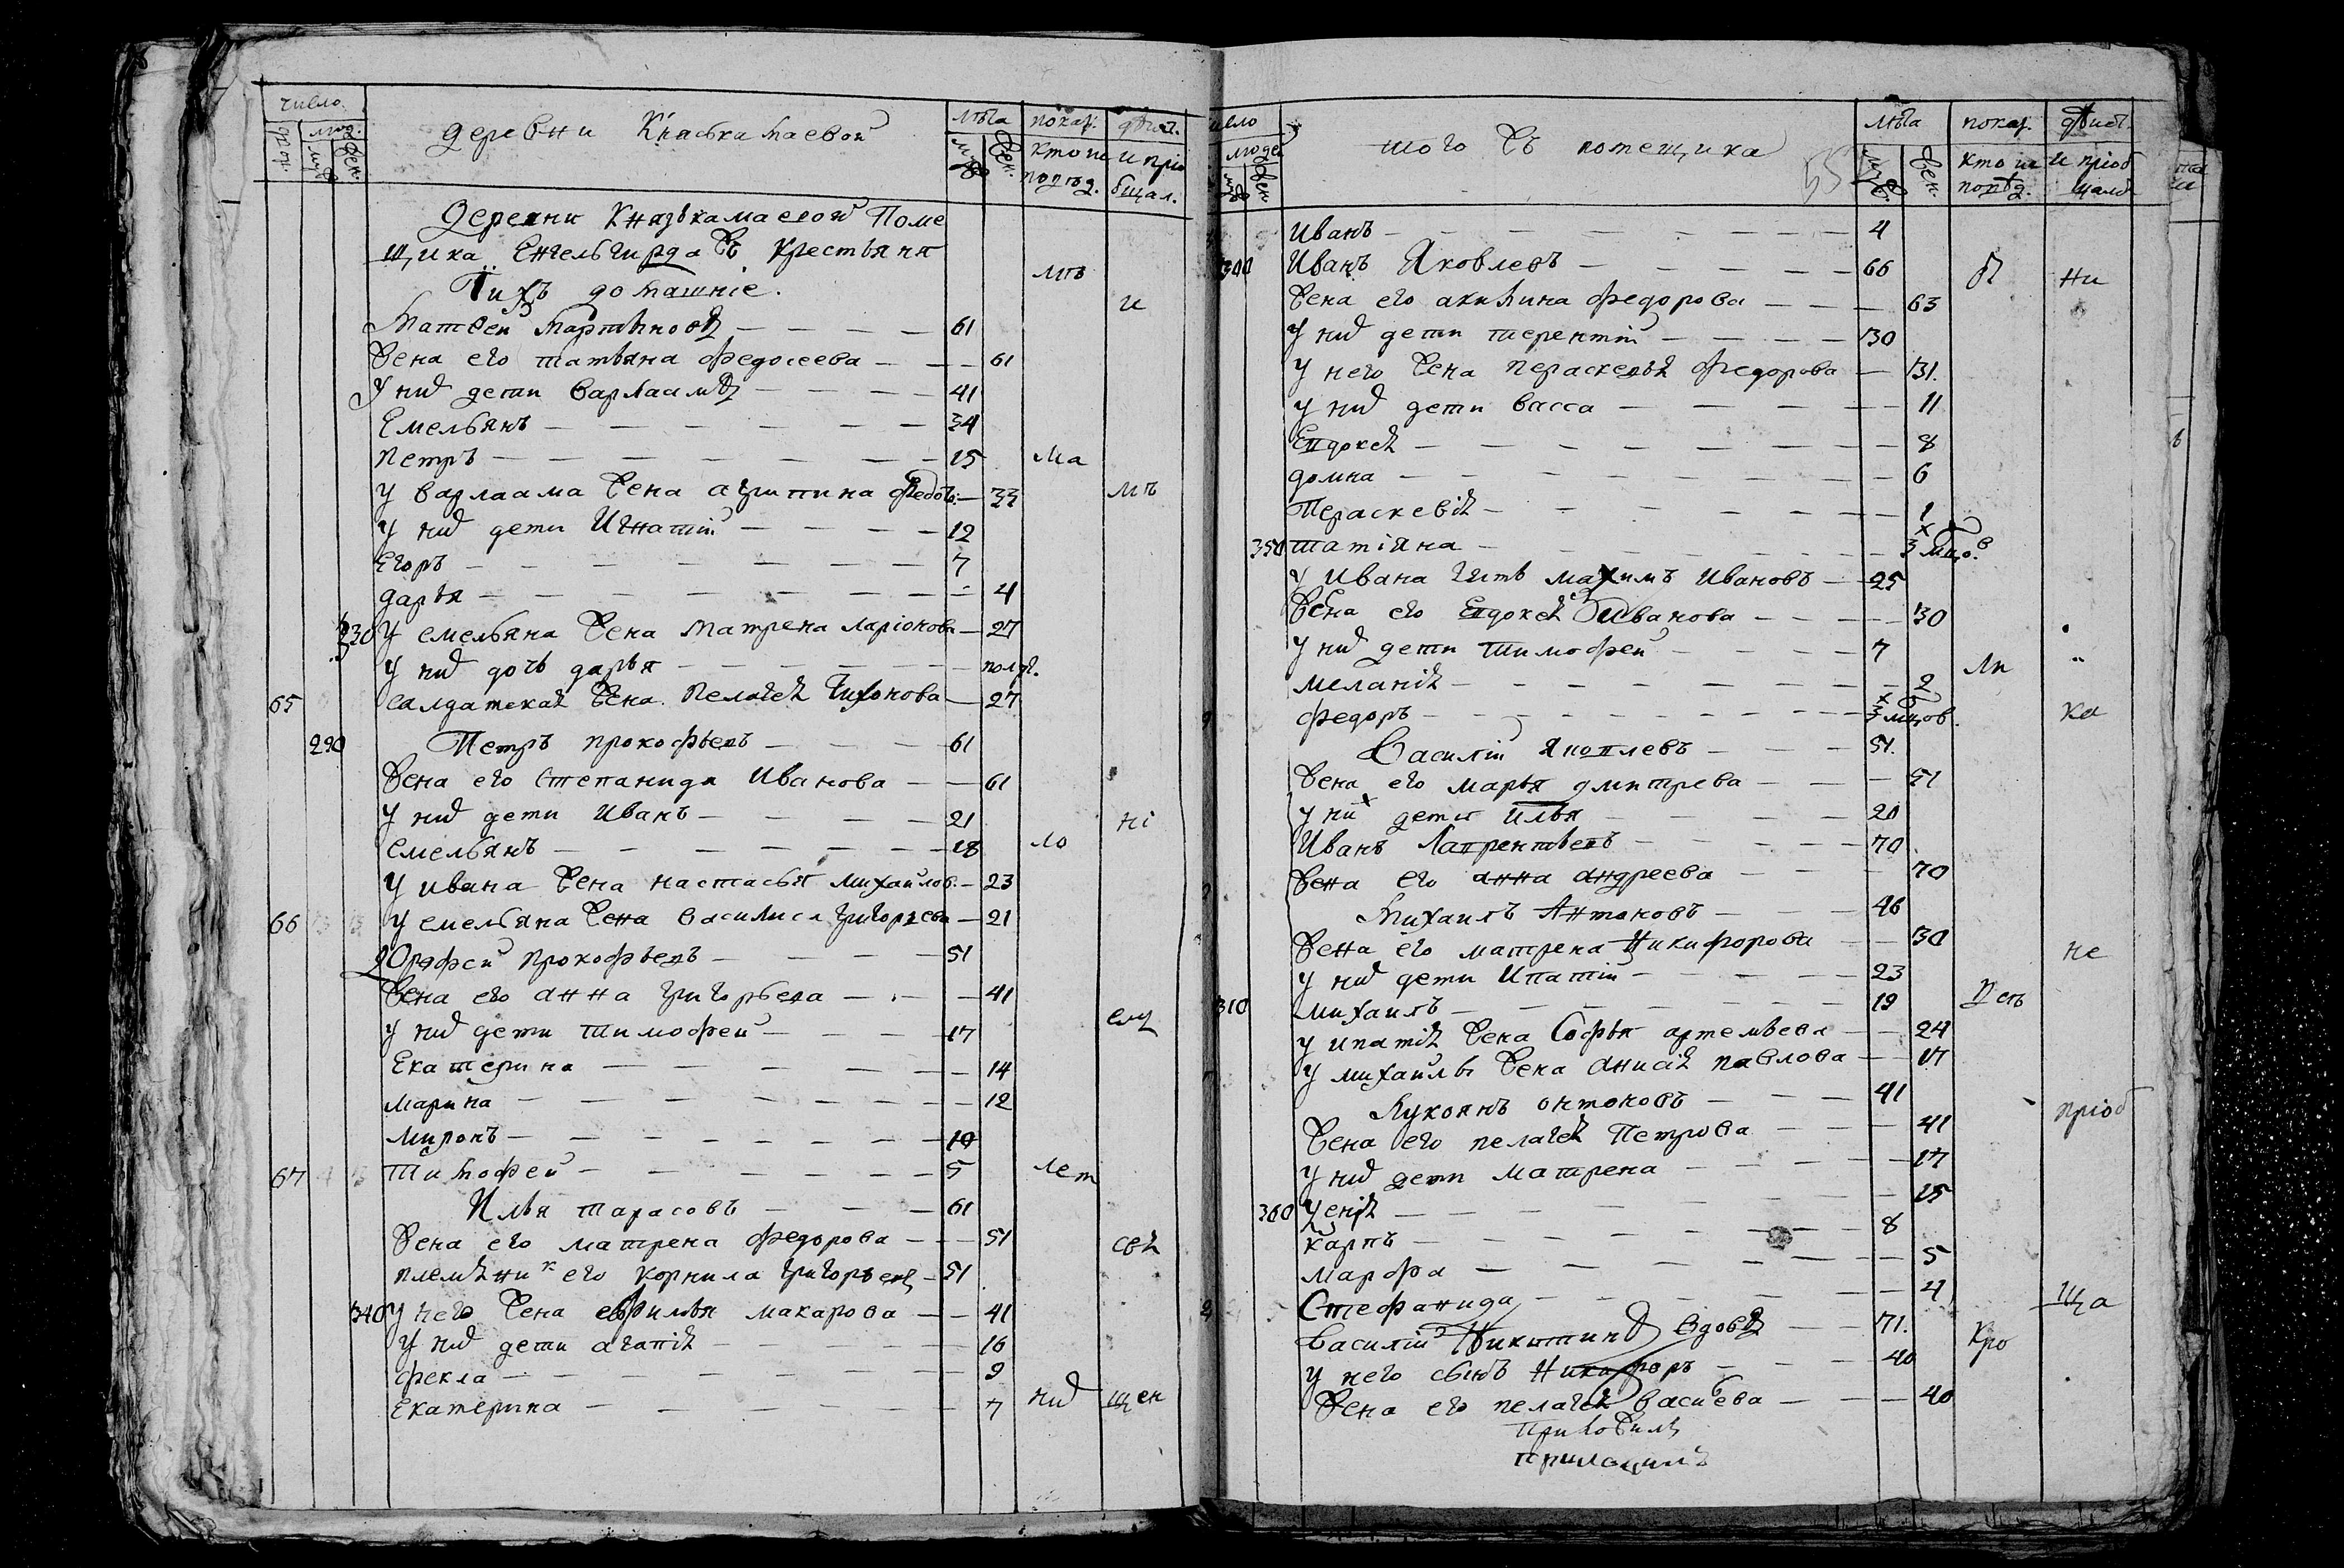 число
двор.
люд.
муж
жен.
деревни Князькамаевой
лѣта
муж
жен.
показ.
кто ис
повѣд.
дѣист.
и прио
бщал.
Деревни Князькамаевой Поме
щика Енгельгирда Жъ Крестьяня
Тихъ домашніе.
Матвеи Мартыновъ 61
Жена его татьяна федосеева 61
У них дети варлаамъ 41
Емельянъ 34
Петръ 15
У варлаама жена агрипина федот: 33
У них дети Игнатіи 12
Егоръ 7
дарья 4
330 У емельяна жена матрена ларіонова 27
У них дочь дарья полгг.
65 салдатская жена Пелагея Тихонова 27
290 Петръ прокофьевъ 61
Жена его Степанида Иванова 61
У них дети Иванъ 21
Емельянъ 18
У ивана жена настасья михаилов: 23
66 У емельяна жена василиса григорьева 21
Ѳрофеи прокофьевъ 51
Жена его анна григорьева 41
У них дети тимофеи 17
Екатерина 14
Марина 12
Миронъ 10
67 тимофеи 5
Илья тарасовъ 61
Жена его матрена федорова 51
племяник его корнила григорьевъ 51
340 У него жена евфимья макарова 41
У них дети агапія 16
фекла 9
Екатерина 7
мъ
ма
ло
лет
них
и
мъ
ні
ему
свя
щен
число
людеи
муж
жен.
того Жъ помещика
55
лѣта
муж
жен.
показ.
кто ис
повѣд.
дѣист.
и пріоб
щалс
Иванъ 4
300 Иванъ Яковлевъ 66
Жена его акилина федорова 63
У них дети терентіи 30
У него жена пераскевья федорова 31.
У них дети васса 11
Евдокея 8
домна 6
Пераскевія 1
350 татіяна 3 мцов
У Ивана зять максимъ Ивановъ 25
Жена его Евдокея Иванова 30
У них дети тимофеи 7
меланія 2
федоръ 3 мцов.
Василіи яковлевъ 51.
Жена его марья дмитрева 51
У них дети илья 20
Иванъ Лаврентьевъ 70
Жена его анна андреева 70
Михаилъ Антоновъ 46
Жена его матрена Никифорова 30
У них дети Ипатіи 23
310 михаилъ 19
У ипатія жена Софья артемьева 24
У михаилы жена анисія павлова 17
Лукоянъ онтоновъ 41
Жена его пелагея Петрова 41
У них дети матрена 17
360 Уенія 15
Карпъ 8
марфа 5
Стефанида 4
василіи Никитинъ вдовъ 71.
У него сынъ Никифоръ 40
Жена его пелагея васильева 40
П
ли
Пет
Кро
ни
ка
не
пріоб
ща